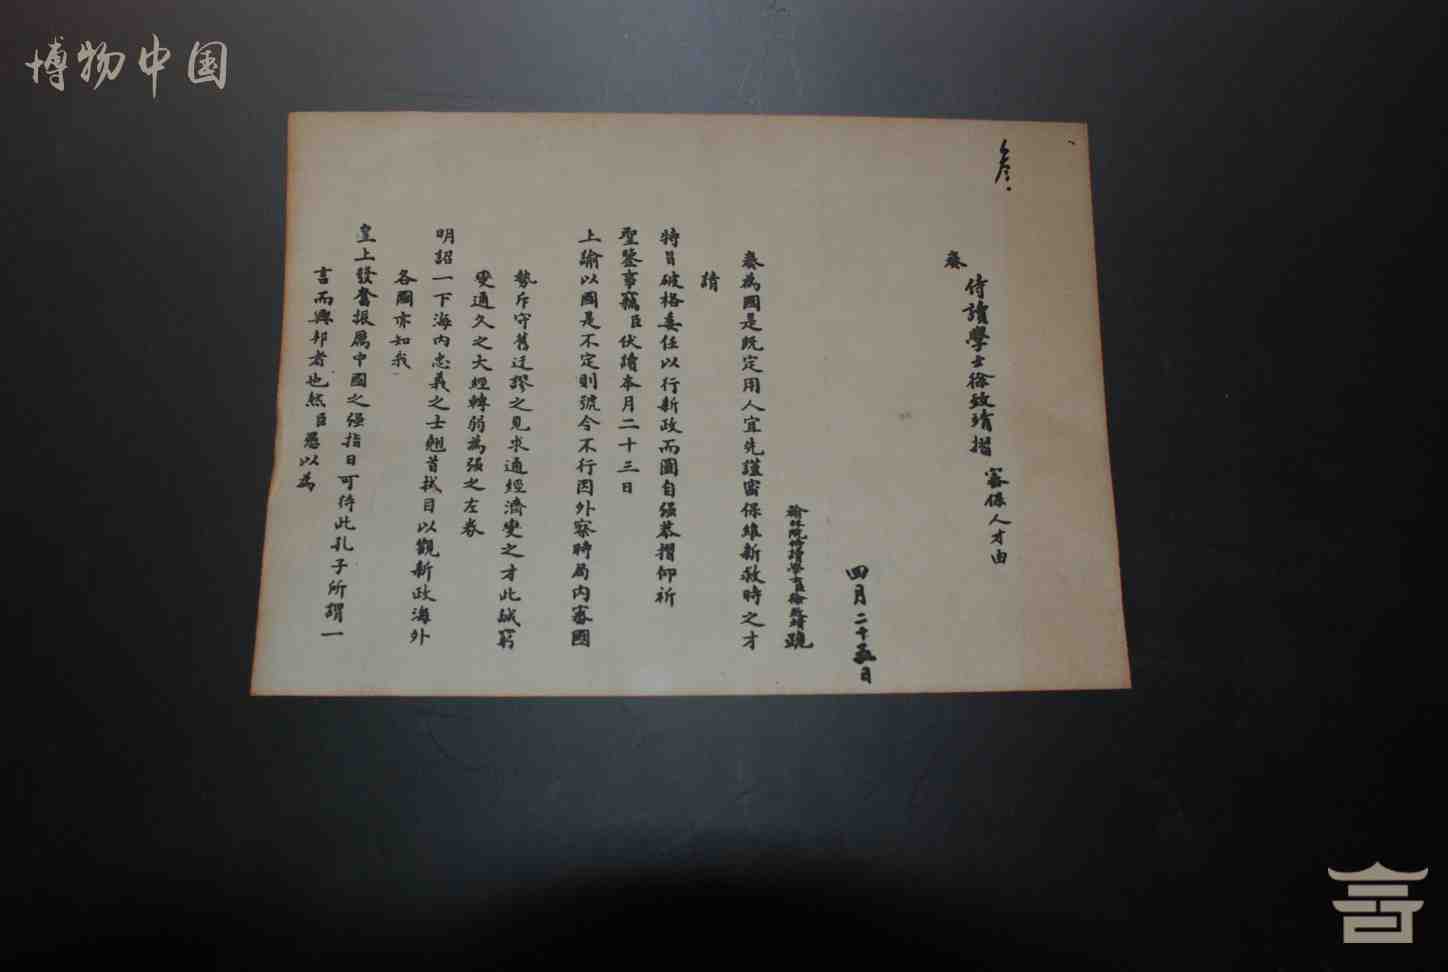 博物中国
奏
侍讀學士徐致靖摺 審保人才由
四月二十五日
翰林院侍讀學士臣徐致靖跪
奏為國是既定用人宜先謹密保維新救時之才
請
特旨破格委任以行新政而圖自强恭摺仰祈
聖鑒事竊臣伏讀本月二十三日
上諭以國是不定則號令不行因外察時局內審國
勢斥守舊迂謬之見求通經濟變之才此誠窮
變通久之大經轉弱為强之左券
明詔一下海內忠義之士翹首拭目以觀新政海外
各國亦知我
皇上發奮振厲中國之强指日可待此孔子所謂一
言而興邦者也然臣愚以為